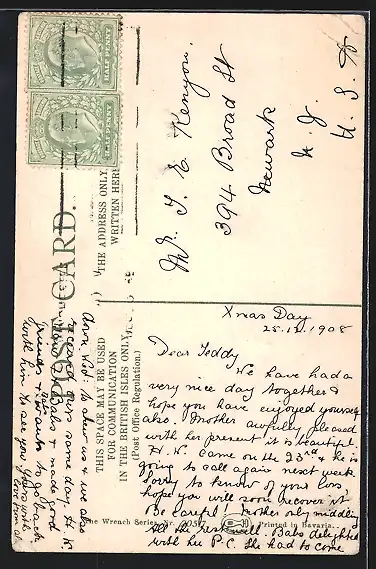 HALF PENNY
HALF PENNY
POST CARD.
THE ADDRESS ONLY
WRITTEN HERE
THIS SPACE MAY BE USED
FOR COMMUNICATION
IN THE BRITISH ISLES ONLY.
(Post Office Regulation.)
Mr. T. E. Kenyon.
394 Broad St
Newark
N. J.
U. S. A
Xmas Day
25.12.1908
Dear Teddy
We have had a
very nice day together &
hope you have enjoyed yourself
also. Mother awfully pleased
with her present it is beautiful.
H. W. came on the 23rd & he is
going to call again next week.
Sorry to know of your loss,
hope you will soon recover it
Be careful! Mother only middling
All the rest well. Babs delighted
with her P.C. She had to come
down to show us & we also
received ours same day. H. W.
made good
friends & wants to go back
with him to see you. Yours with
love from all
The Wrench Series, Nr.
Printed in Bavaria.